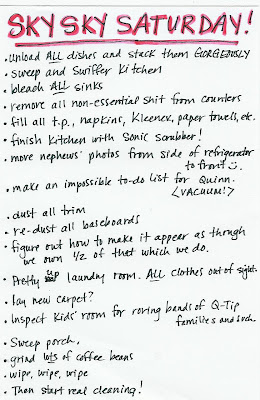 SKY SKY SATURDAY!
• Unload ALL dishes and stack them GORGEOUSLY
• Sweep and Swiffer Kitchen
• bleach ALL sinks
• remove all non-essential shit from counters
• fill all t.p., napkins, Kleenex, paper towels, etc.
• finish kitchen with Sonic Scrubber!
• move nephews' photos from side of refrigerator
to front :).
• make an impossible to-do list for Quinn.
<VACUUM!>
• dust all trim
• re-dust all baseboards
• figure out how to make it appear as though
we own 1/2 of that which we do.
• Pretty up laundry room. ALL clothes out of sight.
• lay new carpet?
• Inspect Kids' room for roving bands of Q-Tip
families and such.
• Sweep porch.
• grind lots of coffee beans
• wipe, wipe, wipe
• Then start real cleaning!